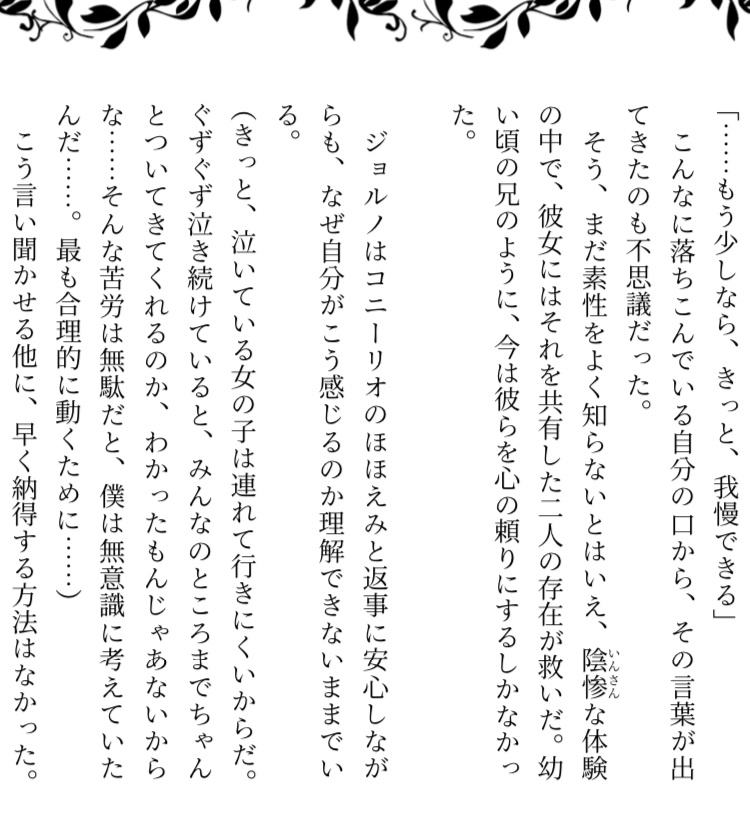 「……もう少しなら、きっと、我慢できる」
　こんなに落ちこんでいる自分の口から、その言葉が出
てきたのも不思議だった。
　そう、まだ素性をよく知らないとはいえ、陰惨な体験
の中で、彼女にはそれを共有した二人の存在が救いだ。幼
い頃の兄のように、今は彼らを心の頼りにするしかなかっ
た。
　ジョルノはコニーリオのほほえみと返事に安心しなが
らも、なぜ自分がこう感じるのか理解できないままでい
る。
（きっと、泣いている女の子は連れて行きにくいからだ。
ぐずぐず泣き続けていると、みんなのところまでちゃん
とついてきてくれるのか、わかったもんじゃあないから
な……そんな苦労は無駄だと、僕は無意識に考えていた
んだ……。最も合理的に動くために……）
　こう言い聞かせる他に、早く納得する方法はなかった。